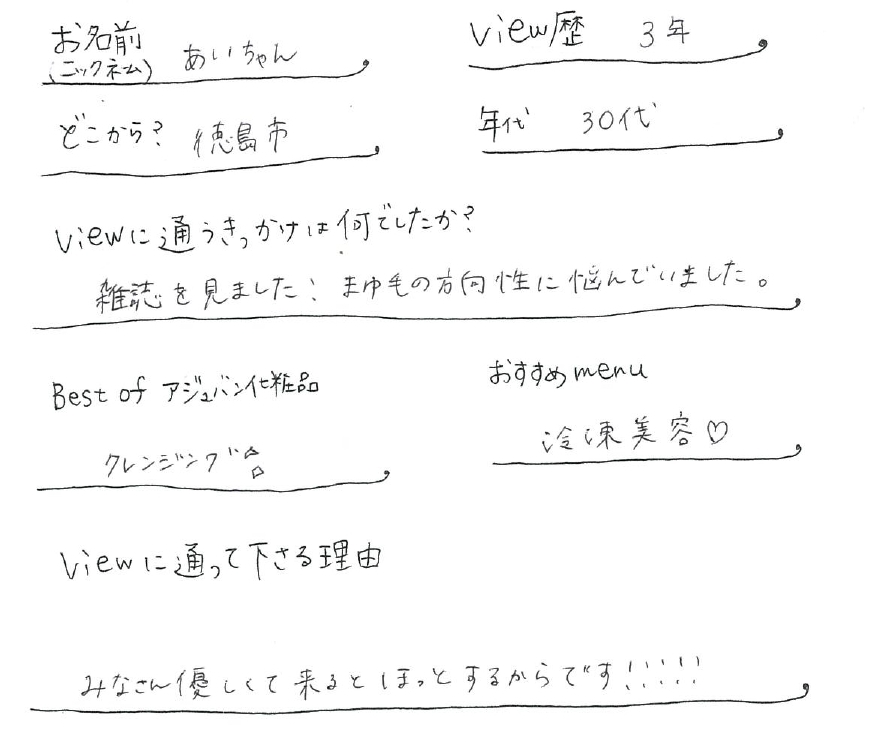 お名前 あいちゃん
(ニックネーム)
view歴 3年
どこから? 徳島市
年代 30代
viewに通うきっかけは何でしたか?
雑誌を見ました! まゆ毛の方向性に悩んでいました。
Best of アジュバン化粧品
クレンジング
おすすめmenu
冷凍美容♡
viewに通って下さる理由
みなさん優しくて来るとほっとするからです!!!!!